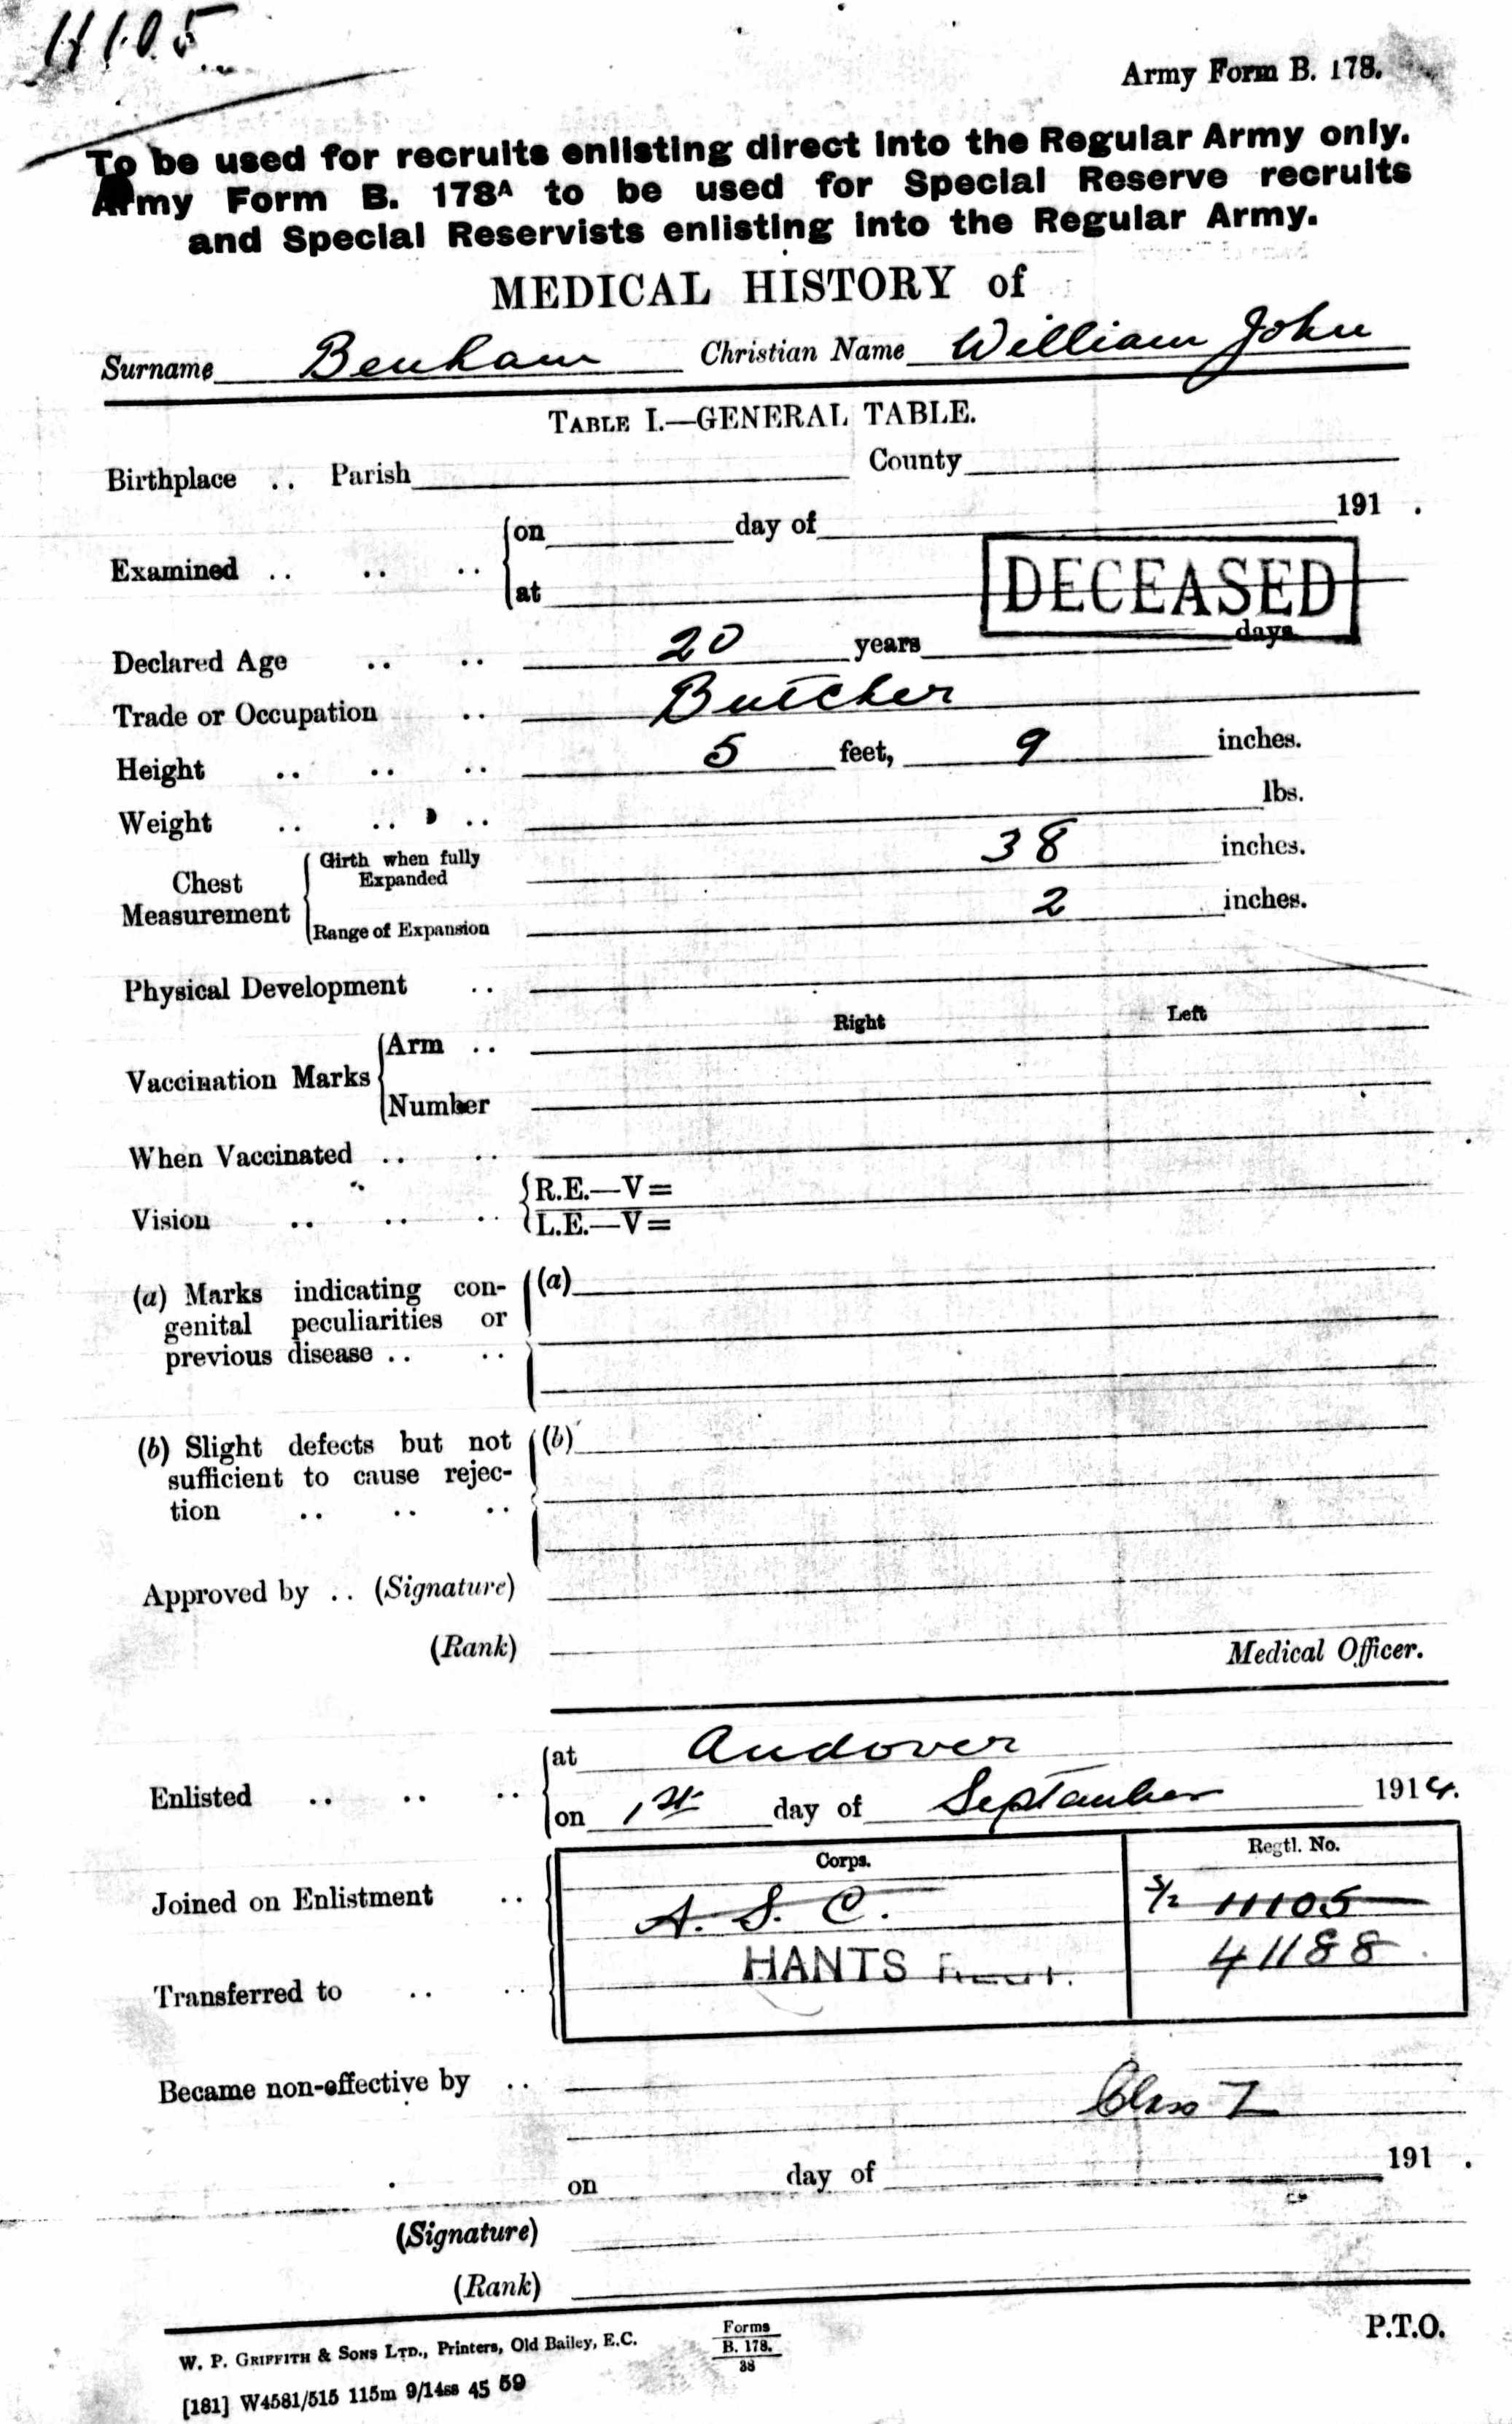 11105
Army Form B. 178.
To be used for recruits enlisting direct into the Regular Army only.
Army Form B. 178A to be used for Special Reserve recruits
and Special Reservists enlisting into the Regular Army.
MEDICAL HISTORY of
Surname Benham Christian Name William John
TABLE I.—GENERAL TABLE.
Birthplace .. Parish County
Examined .. .. .. on day of 191 .
at
DECEASED
Declared Age .. .. 20 years days
Trade or Occupation .. Butcher
Height .. .. .. 5 feet, 9 inches.
Weight .. .. .. lbs.
Chest Measurement Girth when fully Expanded 38 inches.
Range of Expansion 2 inches.
Physical Development ..
Right Left
Vaccination Marks Arm ..
Number
When Vaccinated .. ..
Vision .. .. .. R.E.—V=
L.E.—V=
(a) Marks indicating con- (a)
genital peculiarities or
previous disease .. ..
(b) Slight defects but not (b)
sufficient to cause rejec-
tion .. .. ..
Approved by .. (Signature)
(Rank)
Medical Officer.
Enlisted .. .. .. at Andover
on 1st day of September 1914.
Corps. Regtl. No.
Joined on Enlistment .. A. S. C. S/2 11105
HANTS 41188
Transferred to .. ..
Became non-effective by ..
Class Z
on day of 191 .
(Signature)
(Rank)
W. P. GRIFFITH & SONS LTD., Printers, Old Bailey, E.C.
Forms
B. 178.
38
P.T.O.
[181] W4581/515 115m 9/14 45 59